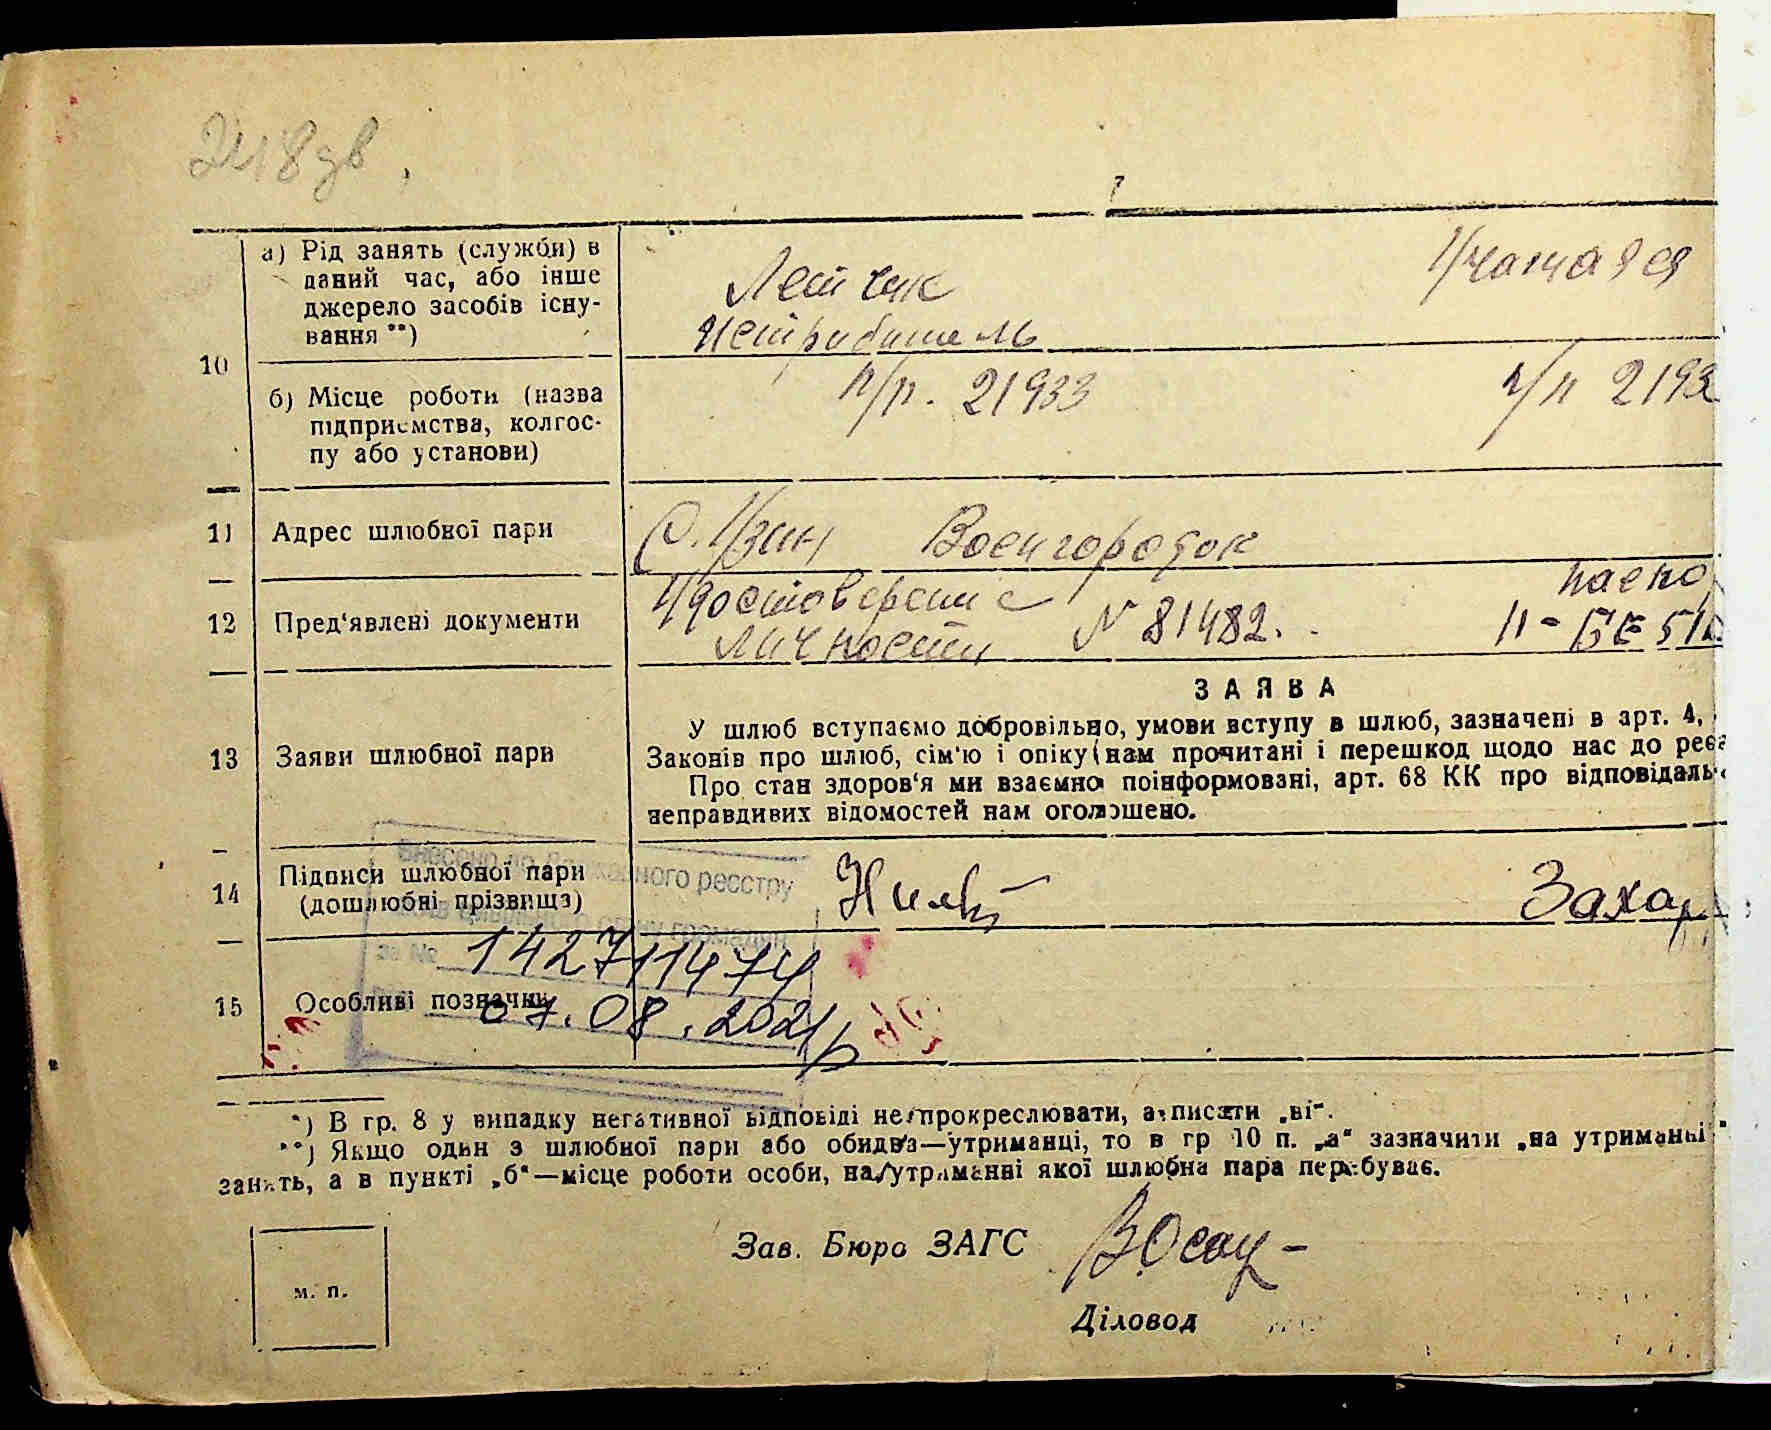 а) Рід занять (служби) в
даний час, або інше
джерело засобів існу-
вання **)
Летчик
истребитель
Учащаяся
10
б) Місце роботи (назва
підприємства, колгос-
пу або установи)
п/п. 21933
п/п 2193
11 Адрес шлюбної пари
С. Узин Воен городок
12 Пред'явлені документи
Удостоверение
личности N 81482.
паспо
II - БЕ 51
ЗАЯВА
13 Заяви шлюбної пари
У шлюб вступаємо добровільно, умови вступу в шлюб, зазначені в арт. 4,
Законів про шлюб, сім'ю і опіку нам прочитані і перешкод щодо нас до реє
Про стан здоров'я ми взаємно поінформовані, арт. 68 КК про відповідаль
неправдивих відомостей нам оголошено.
14 Підписи шлюбної пари
(дошлюбні прізвища)
Захар
Внесено до Державного реєстру
актів цивільного стану громадян
за № 142711474
15 Особливі позначки
07.08.2021р
*) В гр. 8 у випадку негативної відповіді не прокреслювати, а писати „ні".
**) Якщо один з шлюбної пари або обидва—утриманці, то в гр 10 п. „а" зазначити „на утриманні"
занять, а в пункті „б"—місце роботи особи, на утриманні якої шлюбна пара перебуває.
Зав. Бюро ЗАГС
м. п.
Діловод